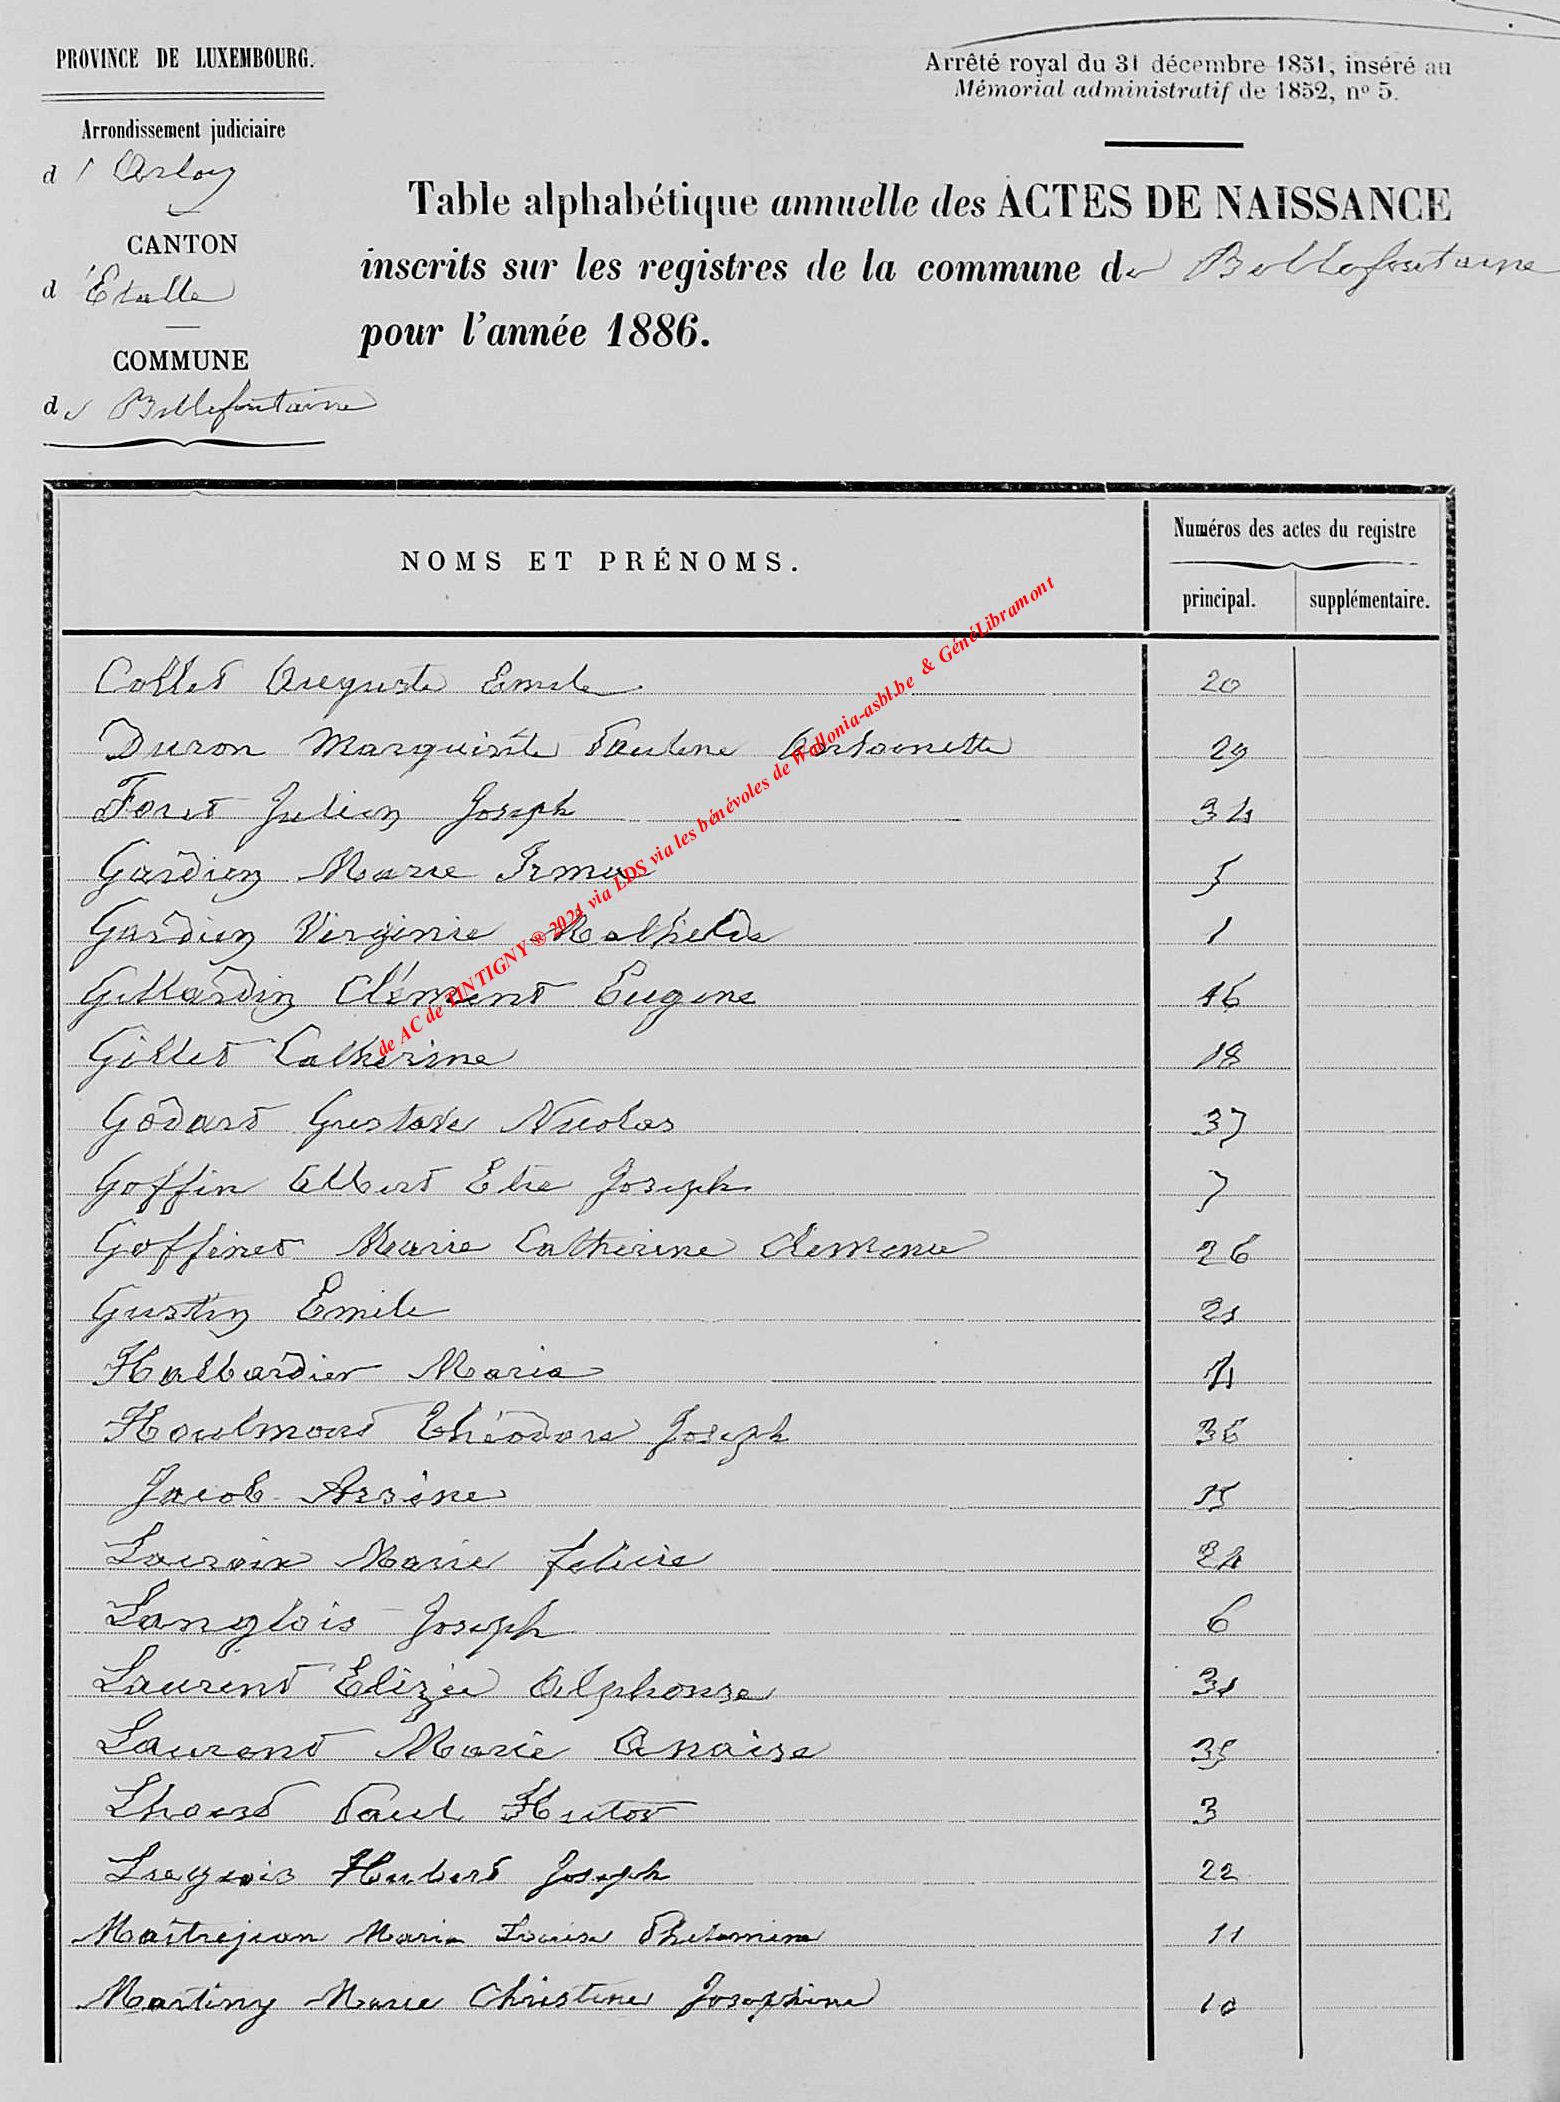 PROVINCE DE LUXEMBOURG.
Arrondissement judiciaire
d'Arlon
CANTON
d'Étalle
COMMUNE
de Bellefontaine
Arrêté royal du 31 décembre 1851, inséré au
Mémorial administratif de 1852, nº 5.
Table alphabétique annuelle des ACTES DE NAISSANCE
inscrits sur les registres de la commune de Bellefontaine
pour l'année 1886.
NOMS ET PRÉNOMS.
Numéros des actes du registre
principal. supplémentaire.
Collet Auguste Emile 20
Duron Marguerite Pauline Antoinette 29
Foret Julien Joseph 34
Gardien Marie Irma 5
Gardien Virginie Mathilde 1
Gillardin Clément Eugene 16
Gillet Catherine 18
Godard Gustave Nicolas 37
Goffin Albert Elie Joseph 7
Goffinet Marie Catherine Clemence 26
Gustin Emile 21
Halbardier Maria
Houlmont Théodore Joseph 36
Jacob Arsène 15
Lacroix Marie Felicie 24
Langlois Joseph 6
Laurent Elizée Alphonse 31
Laurent Marie Anaïse 35
Lhoest Paul 3
Liegeois Hubert Joseph 22
Maîtrejean Maria Louise Philomine 11
Martiny Marie Christine Josephine 10
de AC de TINTIGNY ® 2021 via LDS via les bénévoles de Wallonia-asbl.be & GénéLibramont